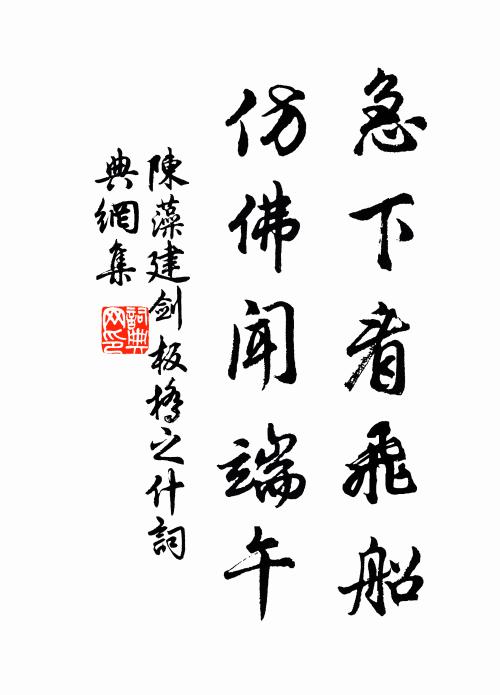 急下者飛船
仿佛聞端午
陳藻建剑板橋之什詞
典網集
詞典
网印